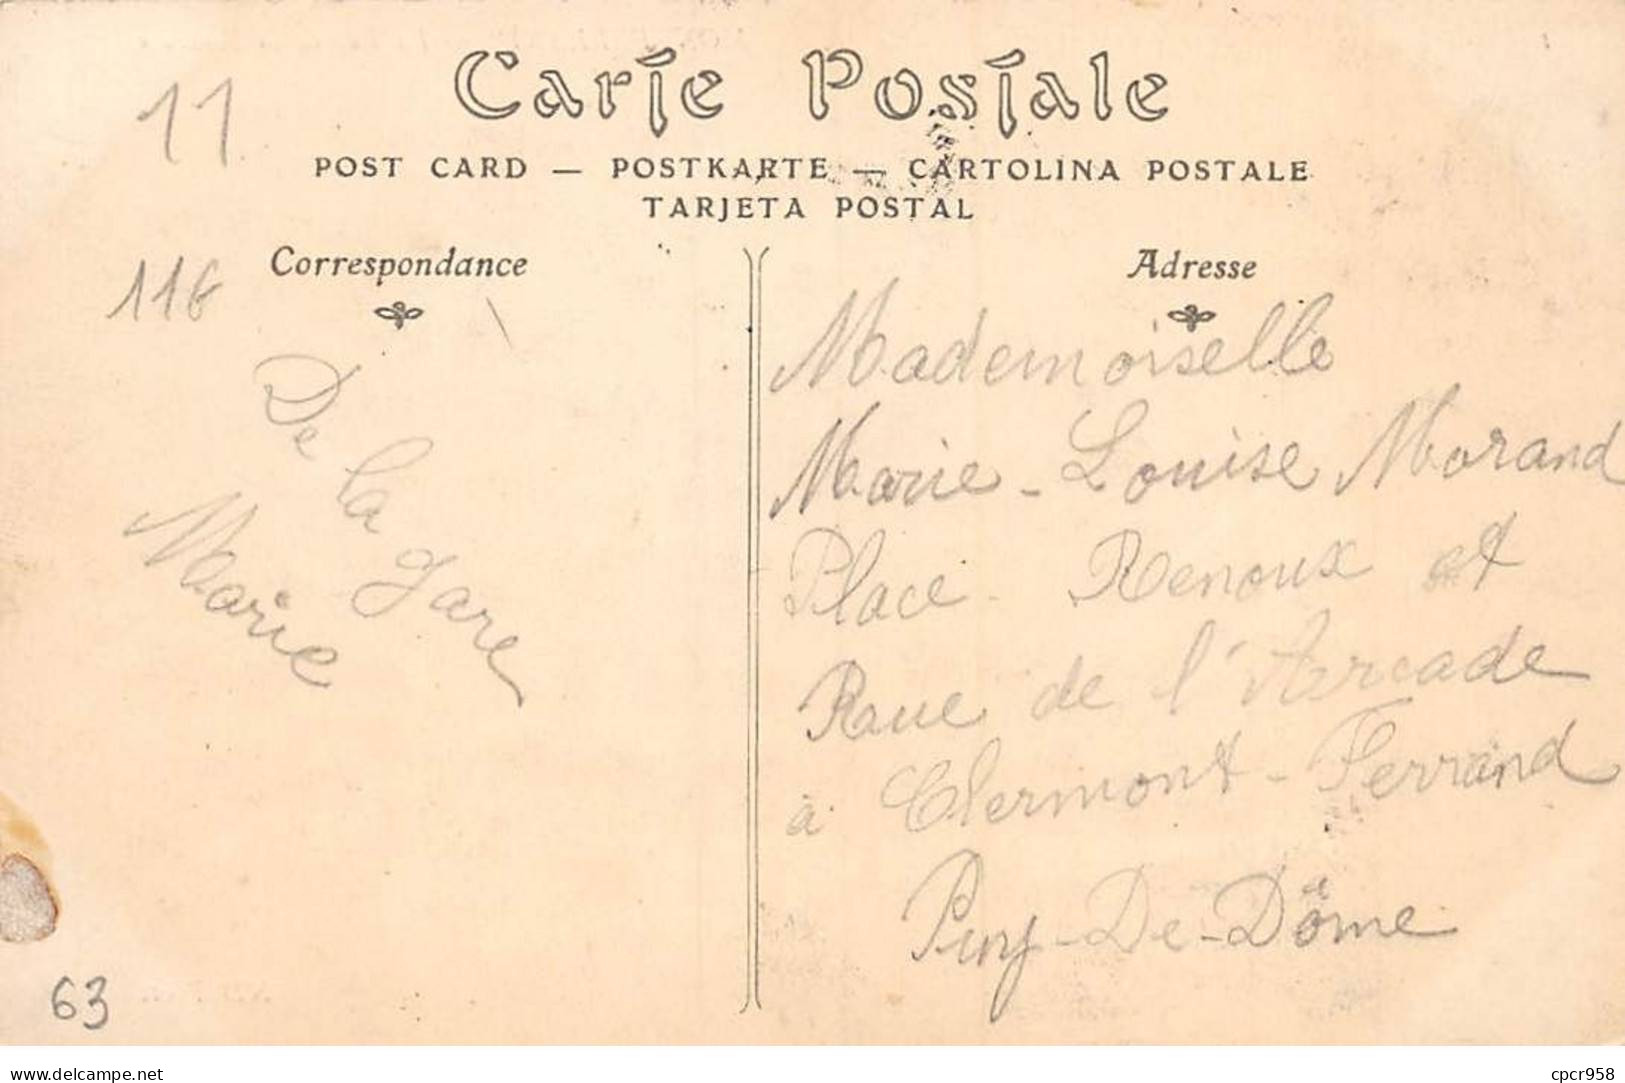 11
Carte Postale
POST CARD — POSTKARTE — CARTOLINA POSTALE
TARJETA POSTAL
116
Correspondance
De la gare
Marie
63
Adresse
Mademoiselle
Marie-Louise Morand
Place Renoux et
Rue de l'Arcade
à Clermont-Ferrand
Puy-De-Dôme
www.delcampe.net
cpcr958